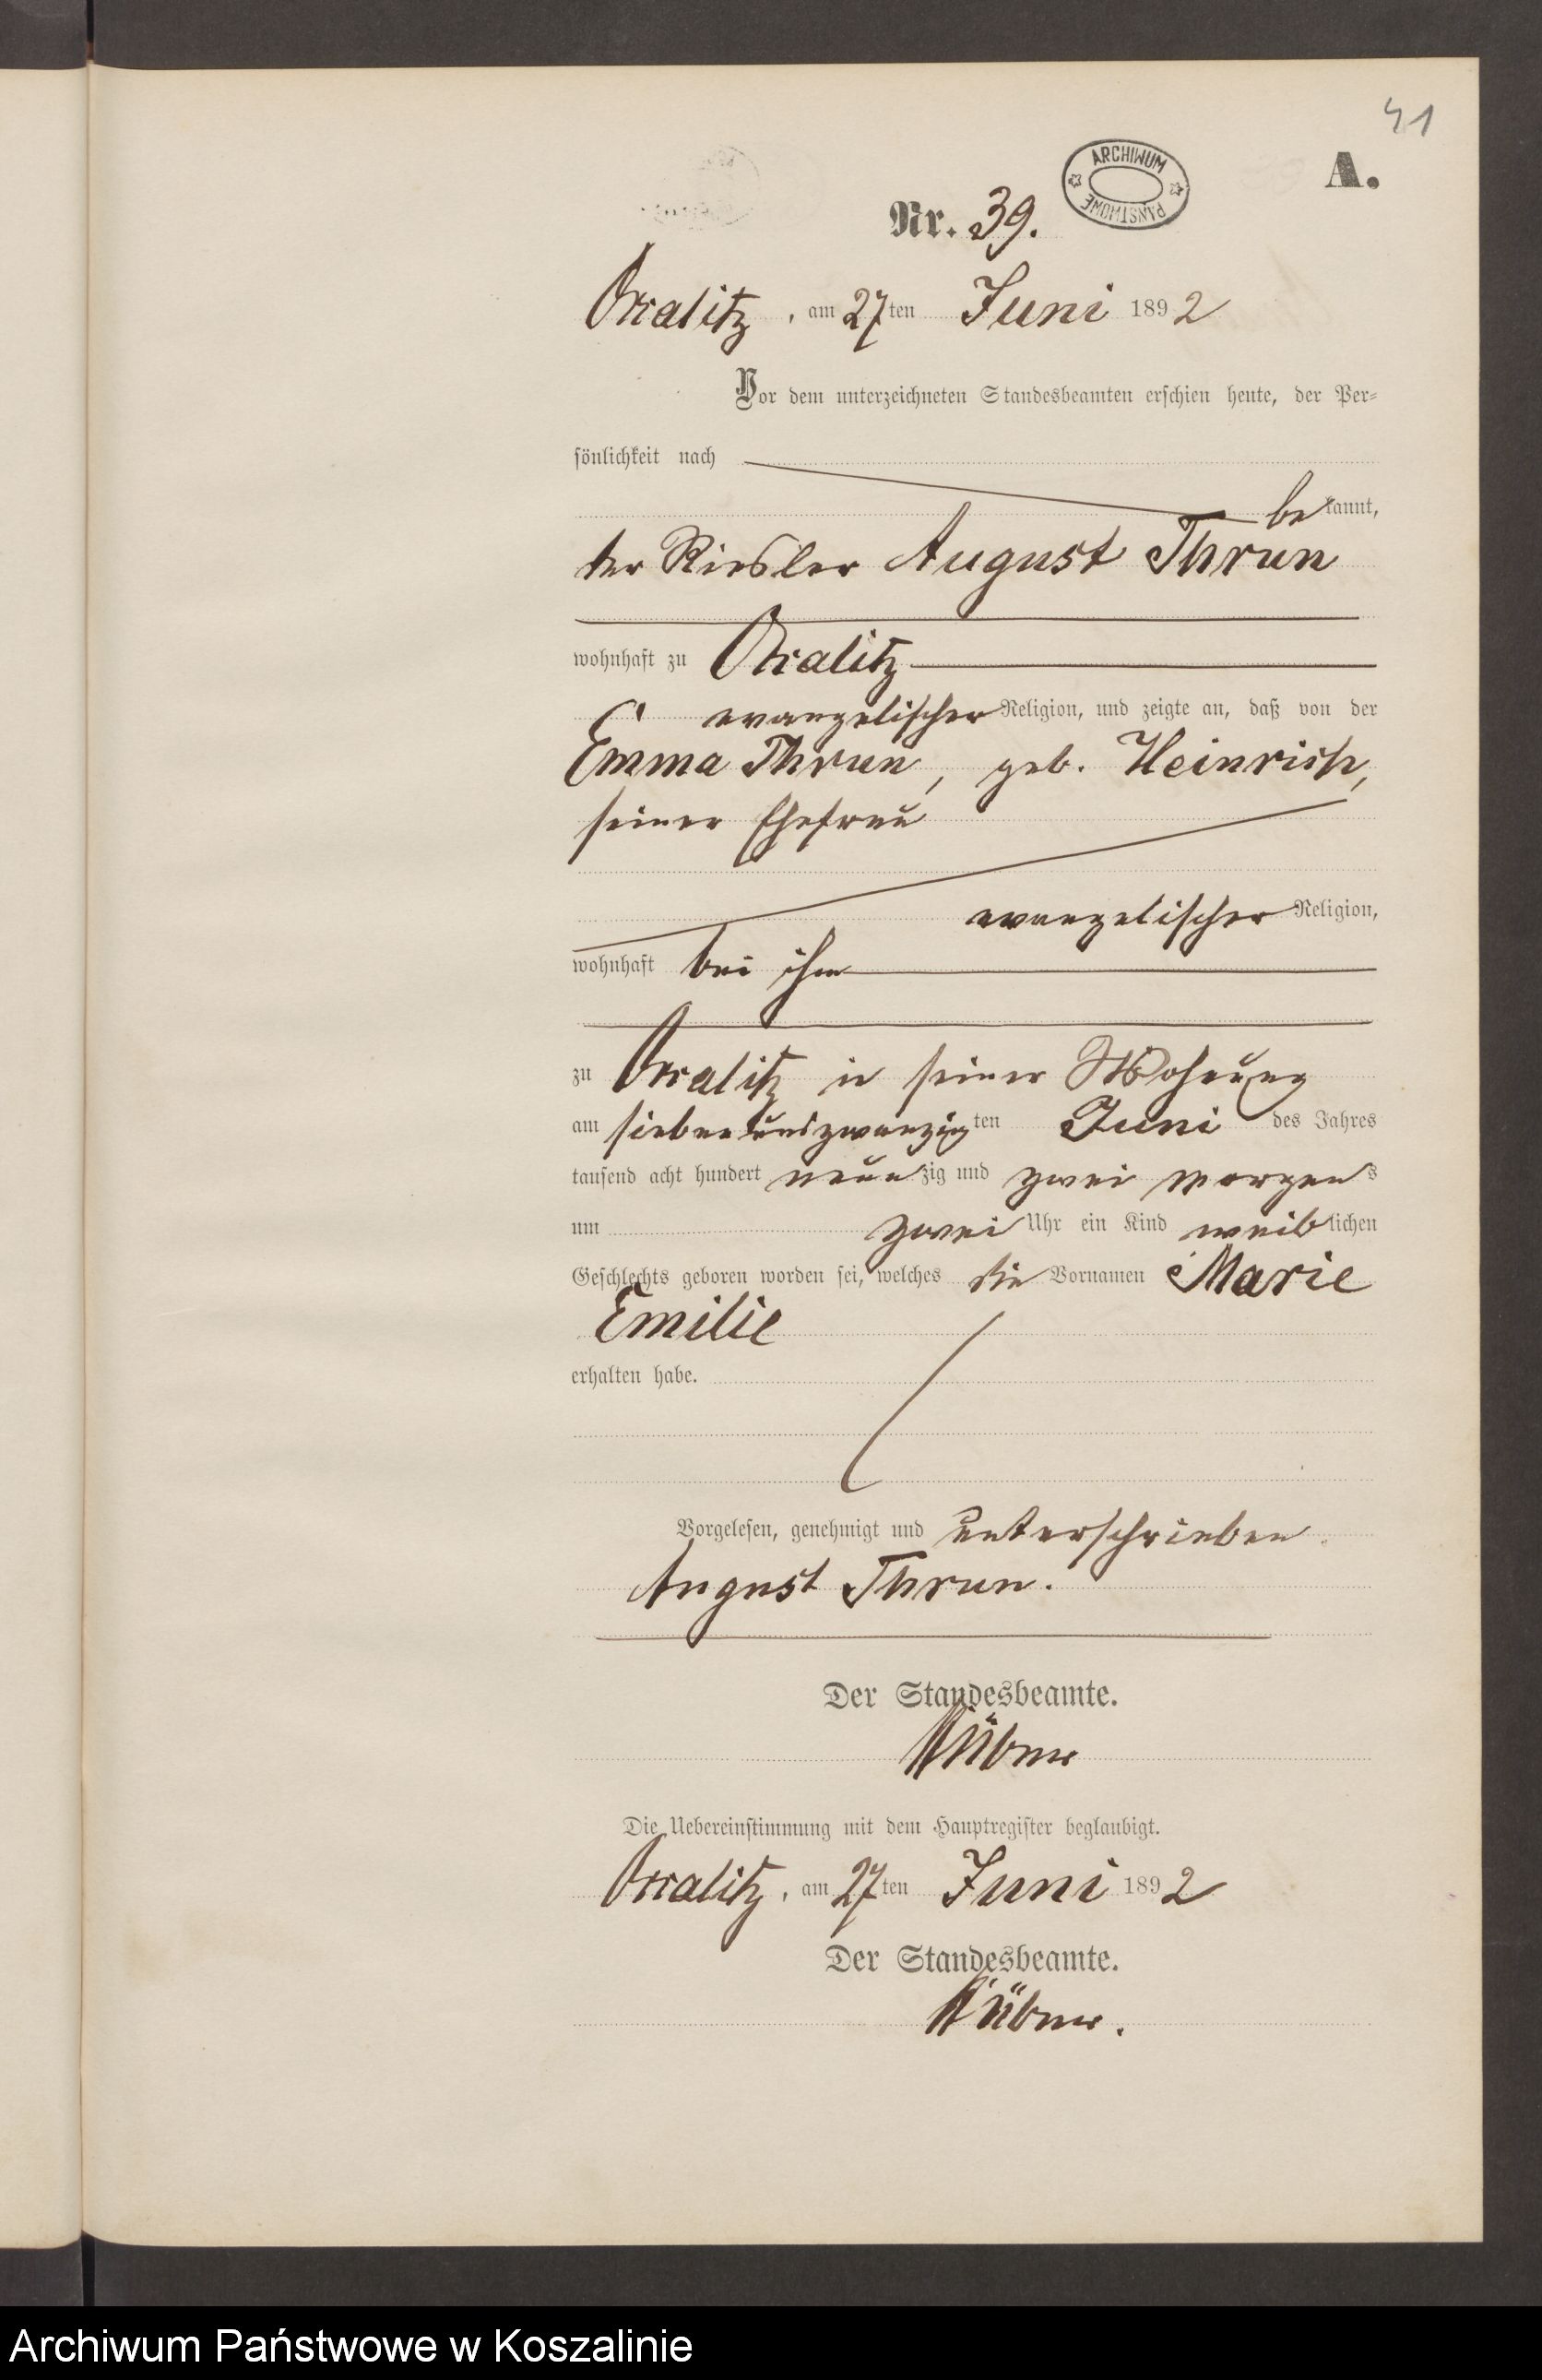 41
A.
ARCHIWUM PAŃSTWOWE
Nr. 39.
, am 27ten Juni 1892
Vor dem unterzeichneten Standesbeamten erschien heute, der Per-
sönlichkeit nach
bekannt,
der August Thrun
wohnhaft zu
evangelischer Religion, und zeigte an, daß von der
Emma Thrun, geb. Heinrich,
seiner Ehefrau
evangelischer Religion,
wohnhaft bei ihm
zu in seiner Wohnung
am siebenundzwanzigten Juni des Jahres
tausend acht hundert neunzig und zwei Morgens
um zwei Uhr ein Kind weiblichen
Geschlechts geboren worden sei, welches die Vornamen Marie
Emilie
erhalten habe.
Vorgelesen, genehmigt und unterschrieben.
August Thrun.
Der Standesbeamte.
Hübner
Die Uebereinstimmung mit dem Hauptregister beglaubigt.
, am 27ten Juni 1892
Der Standesbeamte.
Hübner.
Archiwum Państwowe w Koszalinie